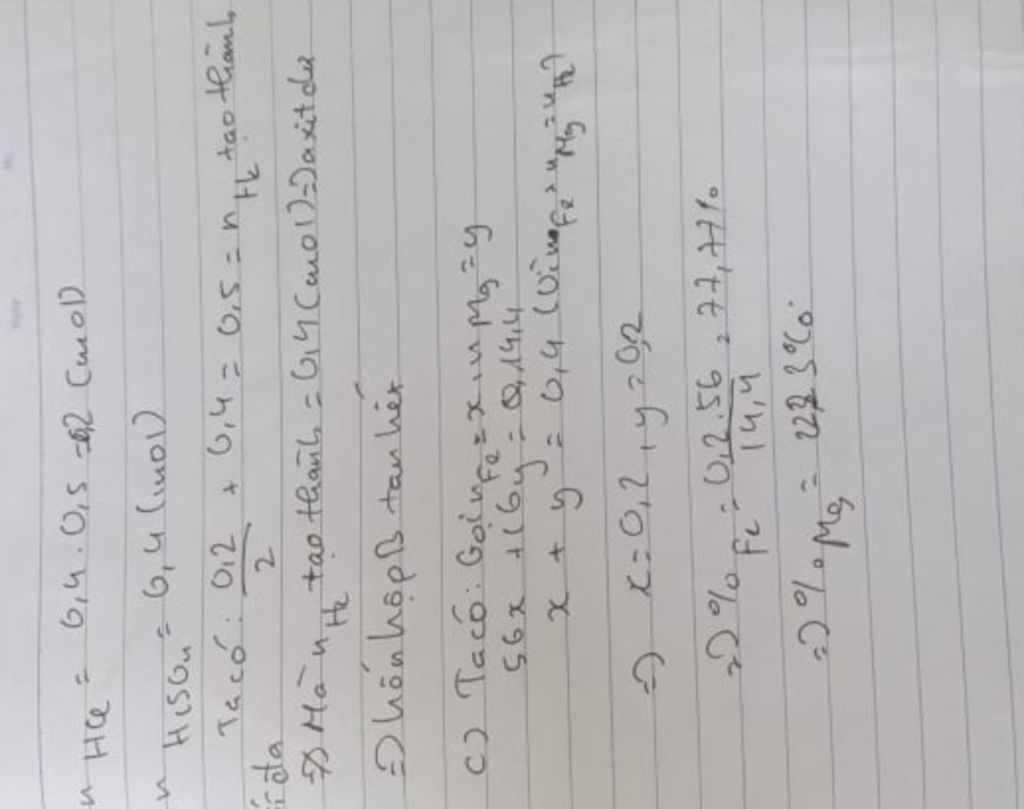 n HCl = 0,4 . 0,5 = 0,2 (mol)
n H2SO4 = 0,4 (mol)
Ta có: 0,2/2 + 0,4 = 0,5 = n H2 tạo thành
tối đa
=> Mà n H2 tạo thành = 0,4 (mol) => axit dư
=> hỗn hợp B tan hết
c) Ta có: Gọi n Fe = x, n Mg = y
56x + 16y = 14,4
x + y = 0,4 (Vì n Fe + n Mg = n H2)
=> x = 0,2, y = 0,2
=> % Fe = 0,2.56/14,4 = 77,77%
=> % Mg = 22,23%.